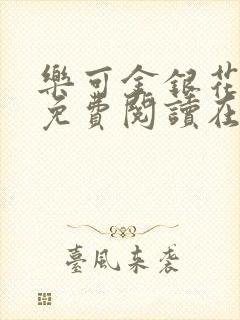 樂可金銀花
免費閱讀在
臺風來袭